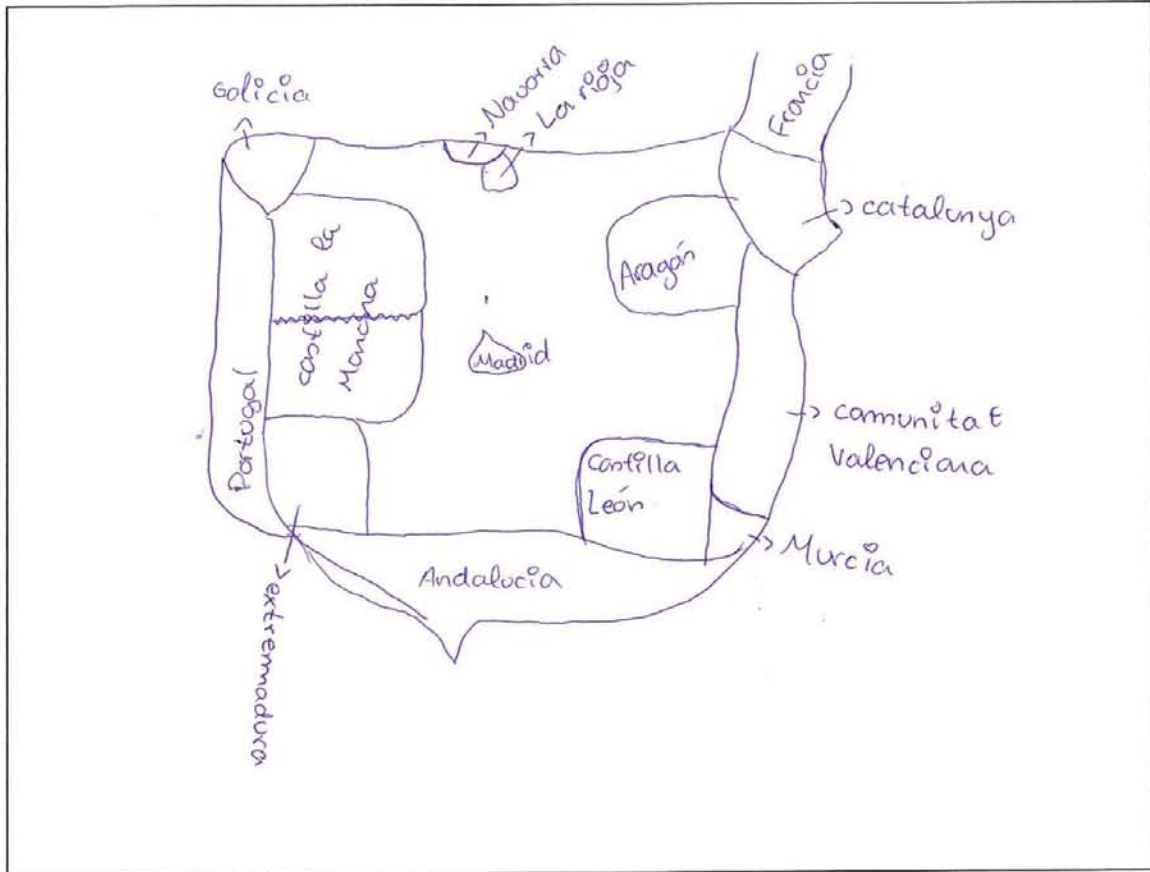 Galicia
Navarra
La rioja
Francia
catalunya
Aragón
castilla la
Mancha
Madrid
Portugal
comunitat
Valenciana
Castilla
León
Murcia
Andalucia
extremadura